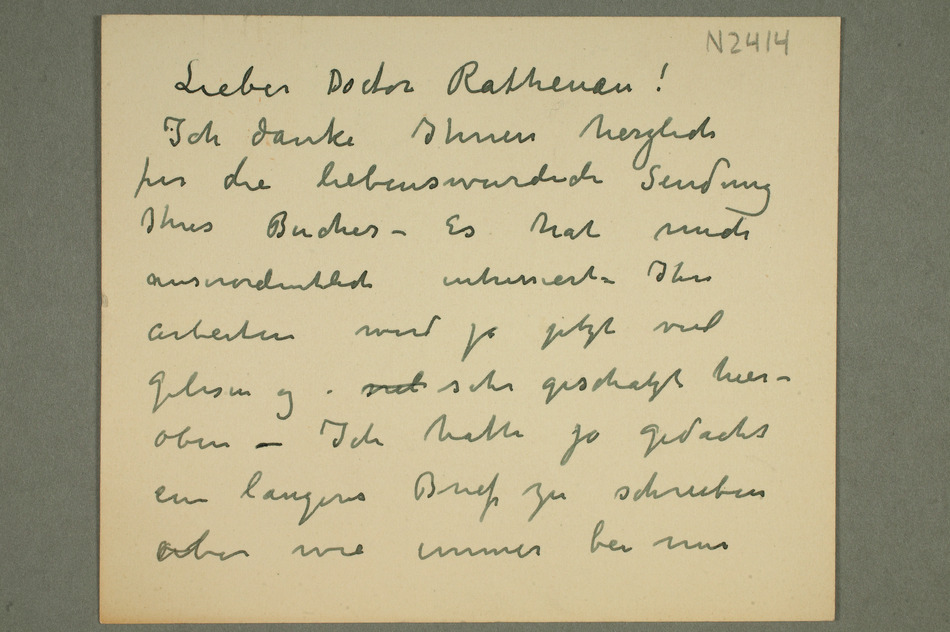 N2414
Lieber Doctor Rathenau!
Ich danke Ihnen herzlich
fur die liebenswurdich Sendung
Ihres Buches – Es hat mich
auserordentlich intressiert – Ihre
arbeiten wird ja jetzt viel
gelesen og . viel sehr geschatzt hier–
oben – Ich hatte ja gedacht
ein langeres Brief zu schreiben
aber wie immer bei mir